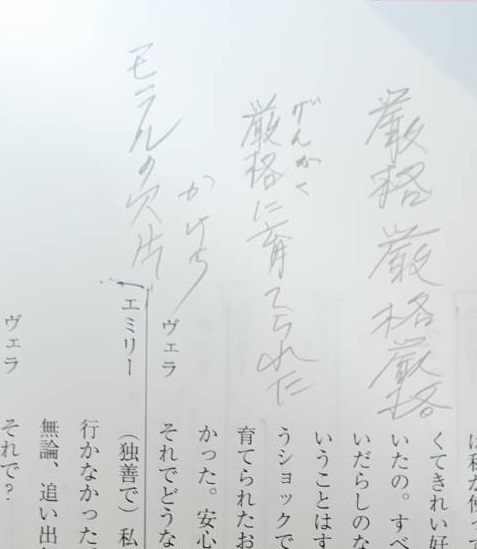 厳格 厳格 厳格
げんかく
厳格に育てられた
かけら
モラルの欠片
は私が使って
くてきれい好
いたの。すべ
いだらしのな
いうことはす
うショックで
育てられたお
かった。安心
ヴェラ
それでどうな
エミリー
（独善で）私
行かなかった
無論、追い出
ヴェラ
それで？